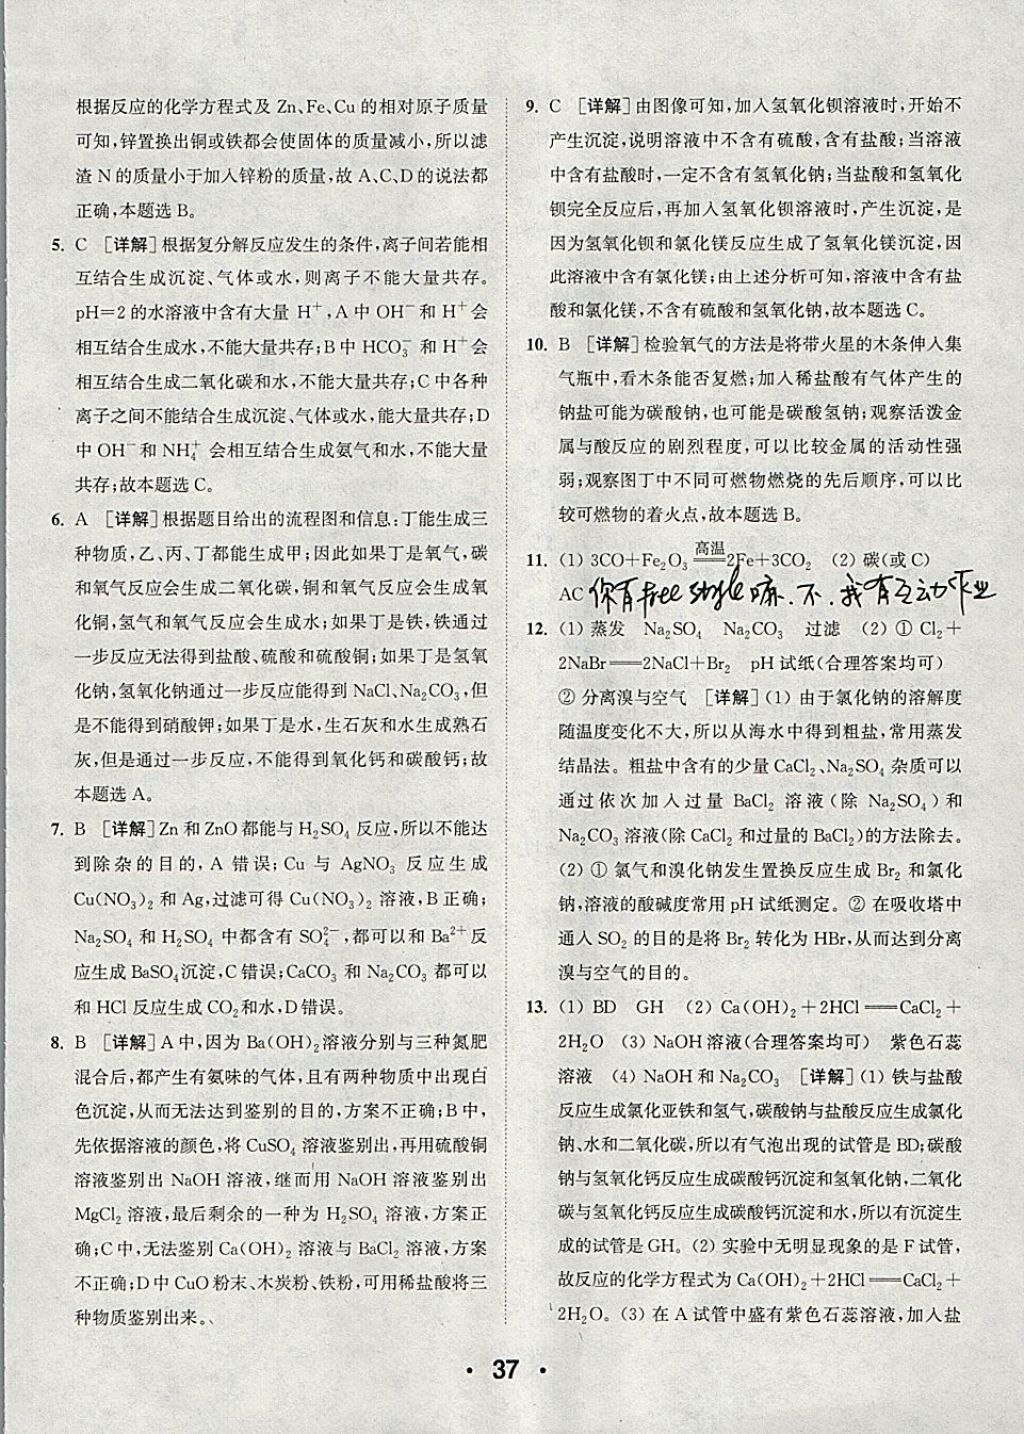 根据反应的化学方程式及 Zn、Fe、Cu 的相对原子质量
可知,锌置换出铜或铁都会使固体的质量减小,所以滤
渣 N 的质量小于加入锌粉的质量,故 A、C、D 的说法都
正确,本题选 B。
5. C [详解]根据复分解反应发生的条件,离子间若能相
互结合生成沉淀、气体或水,则离子不能大量共存。
pH=2 的水溶液中含有大量 H⁺,A 中 OH⁻和 H⁺会
相互结合生成水,不能大量共存;B 中 HCO₃⁻ 和 H⁺会
相互结合生成二氧化碳和水,不能大量共存;C 中各种
离子之间不能结合生成沉淀、气体或水,能大量共存;D
中 OH⁻和 NH₄⁺ 会相互结合生成氨气和水,不能大量
共存;故本题选 C。
6. A [详解]根据题目给出的流程图和信息:丁能生成三
种物质,乙、丙、丁都能生成甲;因此如果丁是氧气,碳
和氧气反应会生成二氧化碳,铜和氧气反应会生成氧
化铜,氢气和氧气反应会生成水;如果丁是铁,铁通过
一步反应无法得到盐酸、硫酸和硫酸铜;如果丁是氢氧
化钠,氢氧化钠通过一步反应能得到 NaCl、Na₂CO₃,但
是不能得到硝酸钾;如果丁是水,生石灰和水生成熟石
灰,但是通过一步反应,不能得到氧化钙和碳酸钙;故
本题选 A。
7. B [详解]Zn 和 ZnO 都能与 H₂SO₄ 反应,所以不能达
到除杂的目的,A 错误;Cu 与 AgNO₃ 反应生成
Cu(NO₃)₂ 和 Ag,过滤可得 Cu(NO₃)₂ 溶液,B 正确;
Na₂SO₄ 和 H₂SO₄ 中都含有 SO₄²⁻,都可以和 Ba²⁺反
应生成 BaSO₄沉淀,C 错误;CaCO₃ 和 Na₂CO₃ 都可以
和 HCl 反应生成 CO₂和水,D 错误。
8. B [详解]A 中,因为 Ba(OH)₂溶液分别与三种氮肥
混合后,都产生有氨味的气体,且有两种物质中出现白
色沉淀,从而无法达到鉴别的目的,方案不正确;B 中,
先依据溶液的颜色,将 CuSO₄ 溶液鉴别出,再用硫酸铜
溶液鉴别出 NaOH 溶液,继而用 NaOH 溶液鉴别出
MgCl₂ 溶液,最后剩余的一种为 H₂SO₄ 溶液,方案正
确;C 中,无法鉴别 Ca(OH)₂ 溶液与 BaCl₂ 溶液,方案
不正确;D 中 CuO 粉末、木炭粉、铁粉,可用稀盐酸将三
种物质鉴别出来。
9. C [详解]由图像可知,加入氢氧化钡溶液时,开始不
产生沉淀,说明溶液中不含有硫酸,含有盐酸;当溶液
中含有盐酸时,一定不含有氢氧化钠;当盐酸和氢氧化
钡完全反应后,再加入氢氧化钡溶液时,产生沉淀,是
因为氢氧化钡和氯化镁反应生成了氢氧化镁沉淀,因
此溶液中含有氯化镁;由上述分析可知,溶液中含有盐
酸和氯化镁,不含有硫酸和氢氧化钠,故本题选 C。
10. B [详解]检验氧气的方法是将带火星的木条伸入集
气瓶中,看木条能否复燃;加入稀盐酸有气体产生的
钠盐可能为碳酸钠,也可能是碳酸氢钠;观察活泼金
属与酸反应的剧烈程度,可以比较金属的活动性强
弱;观察图丁中不同可燃物燃烧的先后顺序,可以比
较可燃物的着火点,故本题选 B。
11. (1) 3CO+Fe₂O₃ 高温══ 2Fe+3CO₂ (2) 碳(或 C)
AC 你有 free style 嘛.不.我有互动作业
12. (1) 蒸发 Na₂SO₄ Na₂CO₃ 过滤 (2) ① Cl₂+
2NaBr══2NaCl+Br₂ pH 试纸(合理答案均可)
② 分离溴与空气 [详解](1) 由于氯化钠的溶解度
随温度变化不大,所以从海水中得到粗盐,常用蒸发
结晶法。粗盐中含有的少量 CaCl₂、Na₂SO₄ 杂质可以
通过依次加入过量 BaCl₂ 溶液(除 Na₂SO₄)和
Na₂CO₃ 溶液(除 CaCl₂ 和过量的 BaCl₂)的方法除去。
(2) ① 氯气和溴化钠发生置换反应生成 Br₂ 和氯化
钠,溶液的酸碱度常用 pH 试纸测定。② 在吸收塔中
通入 SO₂ 的目的是将 Br₂ 转化为 HBr,从而达到分离
溴与空气的目的。
13. (1) BD GH (2) Ca(OH)₂+2HCl══CaCl₂+
2H₂O (3) NaOH 溶液(合理答案均可) 紫色石蕊
溶液 (4) NaOH 和 Na₂CO₃ [详解](1) 铁与盐酸
反应生成氯化亚铁和氢气,碳酸钠与盐酸反应生成氯化
钠、水和二氧化碳,所以有气泡出现的试管是 BD;碳酸
钠与氢氧化钙反应生成碳酸钙沉淀和氢氧化钠,二氧化
碳与氢氧化钙反应生成碳酸钙沉淀和水,所以有沉淀生
成的试管是 GH。(2) 实验中无明显现象的是 F 试管,
故反应的化学方程式为 Ca(OH)₂+2HCl══CaCl₂+
2H₂O。(3) 在 A 试管中盛有紫色石蕊溶液,加入盐
• 37 •